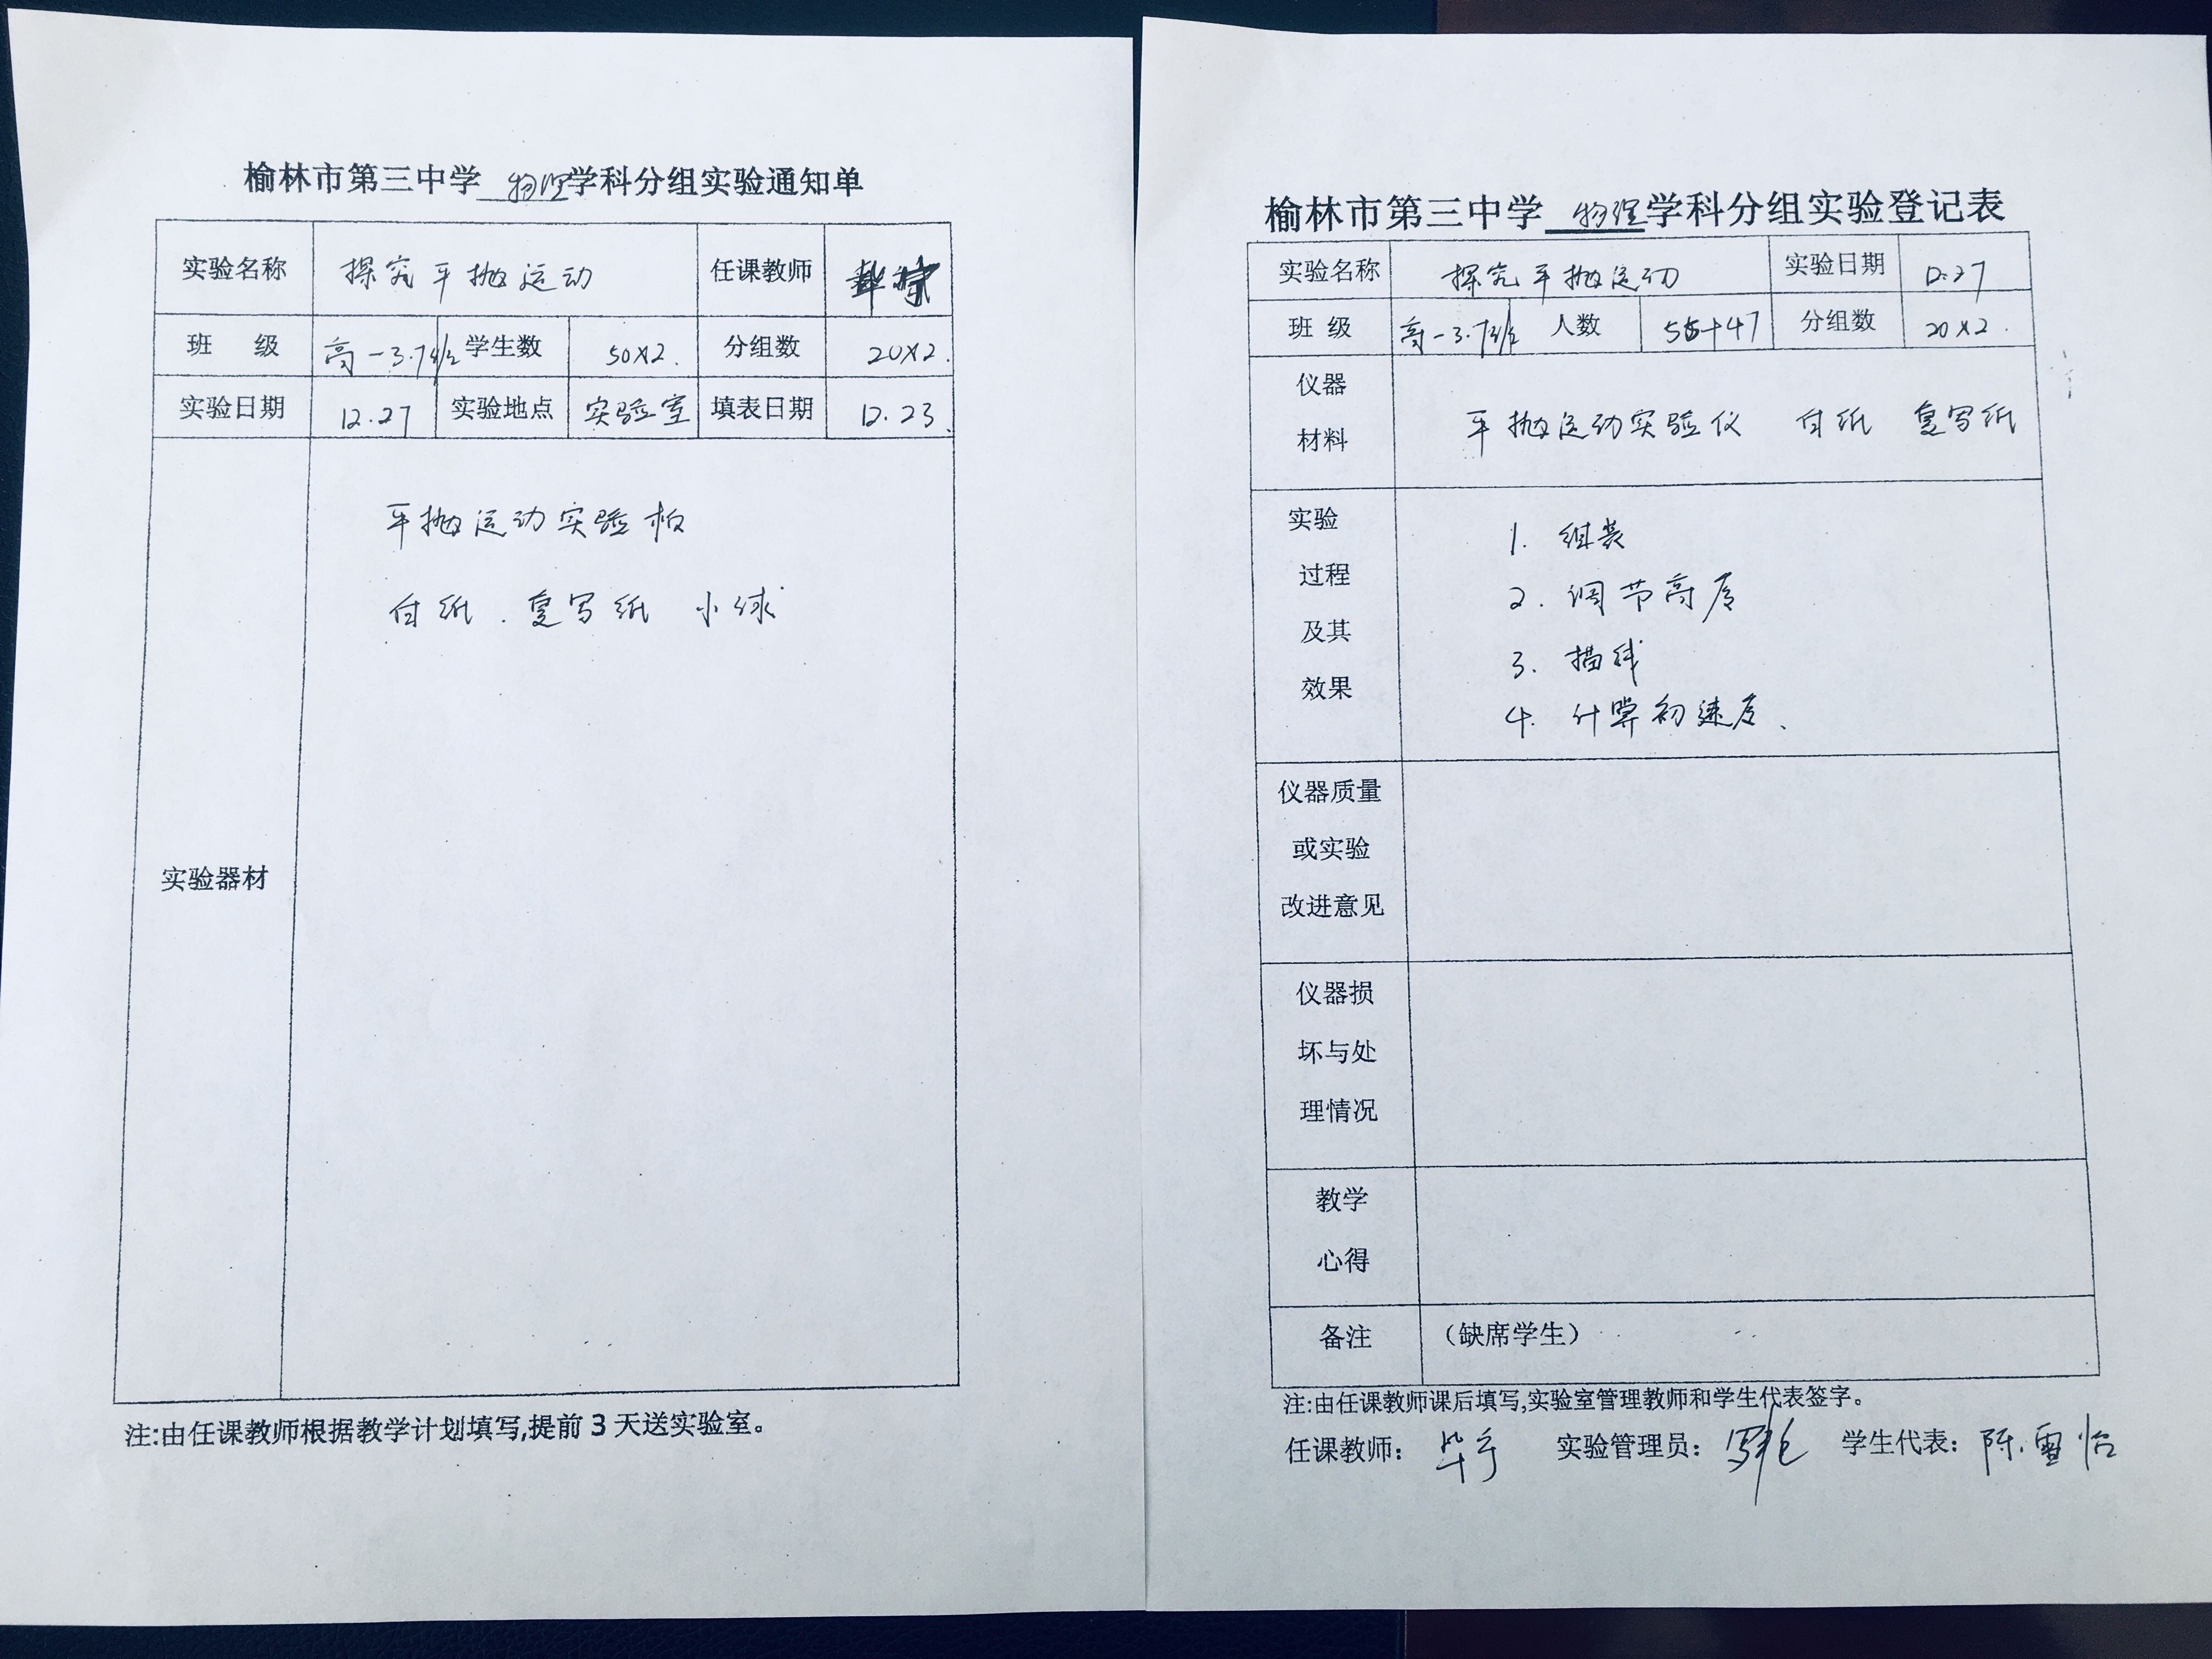 榆林市第三中学 物理学科分组实验通知单
实验名称 探究平抛运动 任课教师
班 级 高一3.7班 学生数 50×2. 分组数 20×2.
实验日期 12.27 实验地点 实验室 填表日期 12.23.
实验器材
平抛运动实验板
白纸.复写纸 小球
注:由任课教师根据教学计划填写,提前3天送实验室。
榆林市第三中学 物理学科分组实验登记表
实验名称 探究平抛运动 实验日期 12.27
班 级 高一3.7班 人数 55+47 分组数 20×2.
仪器
材料
平抛运动实验仪 白纸 复写纸
实验
过程
及其
效果
1. 组装
2. 调节高度
3. 描线
4. 计算初速度、
仪器质量
或实验
改进意见
仪器损
坏与处
理情况
教学
心得
备注 （缺席学生）
注:由任课教师课后填写,实验室管理教师和学生代表签字。
任课教师： 实验管理员： 学生代表：陈雪怡